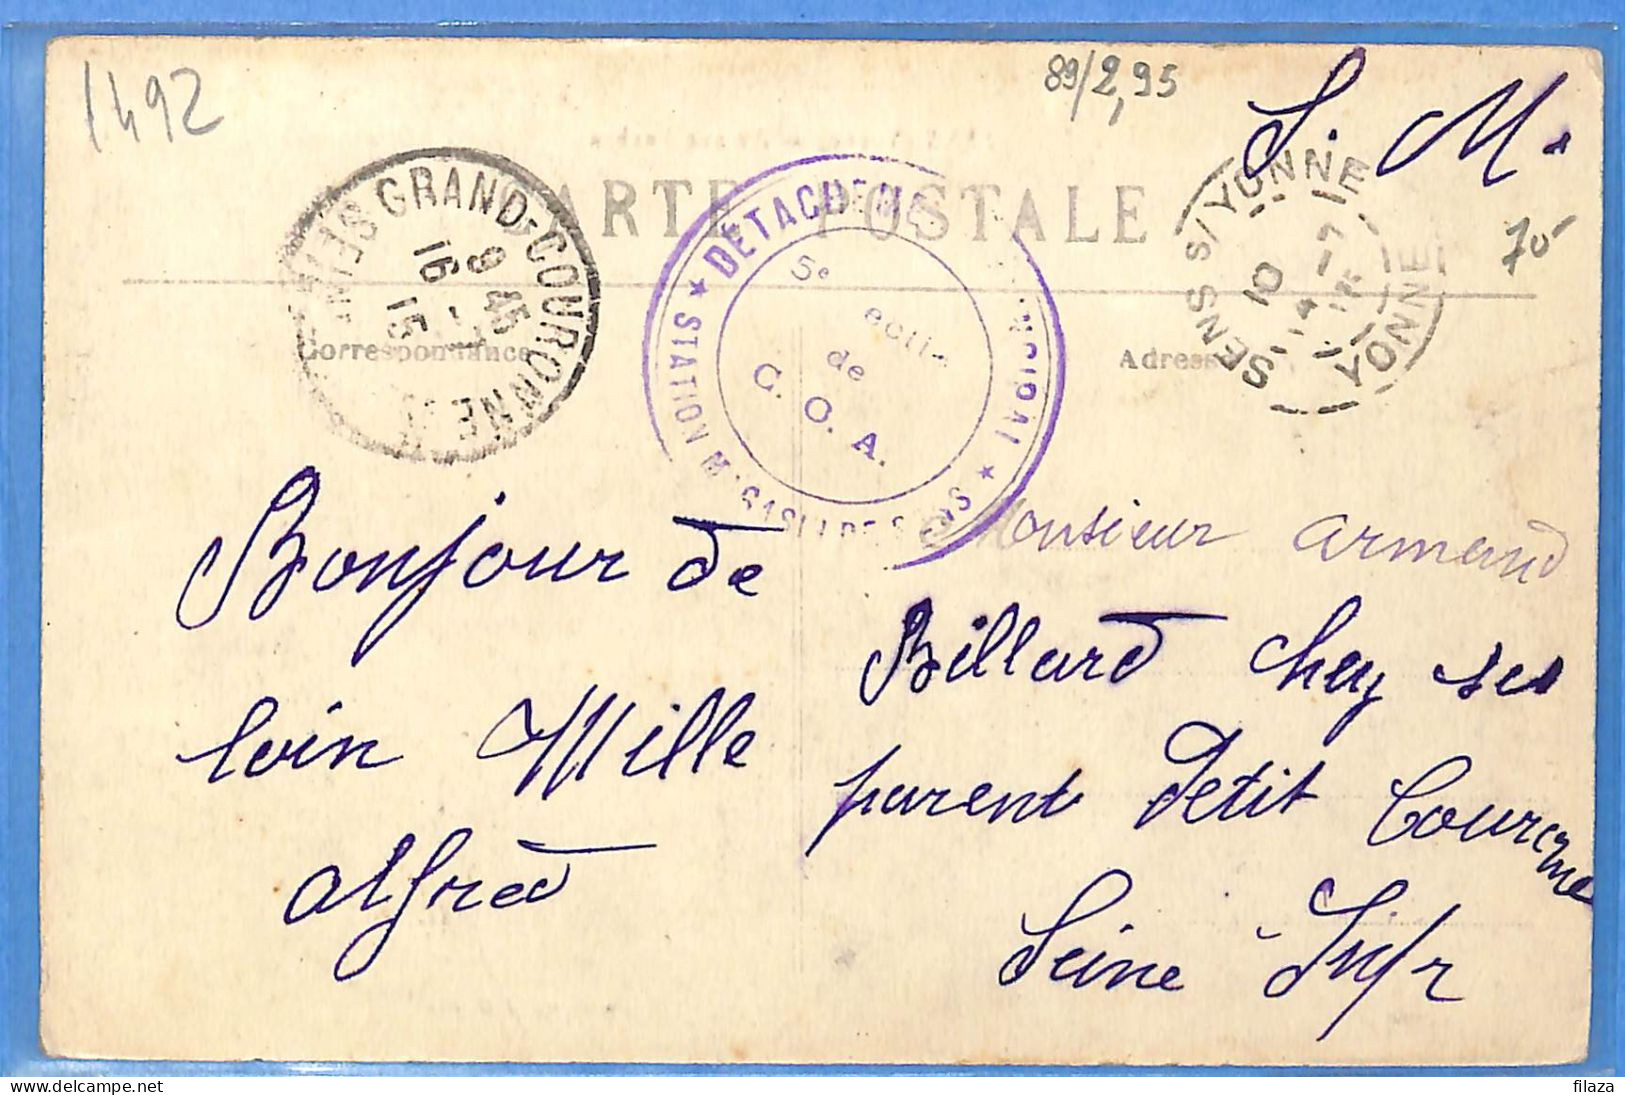 1492
89/2,95
S. M.
70
CARTE POSTALE
GRAND-COURONNE
SEINE
9 45
16
15
DÉTACHEMENT
STATION MAGASIN DE SENS
5e
Section
de
C. O. A.
SENS S/YONNE
YONNE
10
Correspondance
Adresse
Bonjour de
loin Mille
Alfred
Monsieur Armand
Billard chez ses
parent Petit Couronne
Seine Infr
filaza